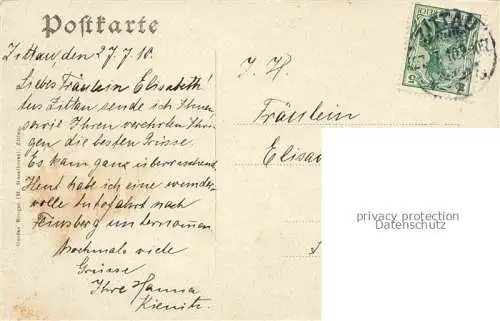 Postkarte
Zittau, den 27.7.10.
Liebes Fräulein Elisabeth!
Aus Zittau sende ich Ihnen,
sowie Ihren verehrten Ihri-
gen die besten Grüsse.
Es kam ganz überraschend.
Heut habe ich eine wunder-
volle Autofahrt nach
unternommen.
Nochmals viele
Grüsse
Ihre Hanna
Kienitz.
I. H.
Fräulein
Elisa
ZITTAU
5
privacy protection
Datenschutz